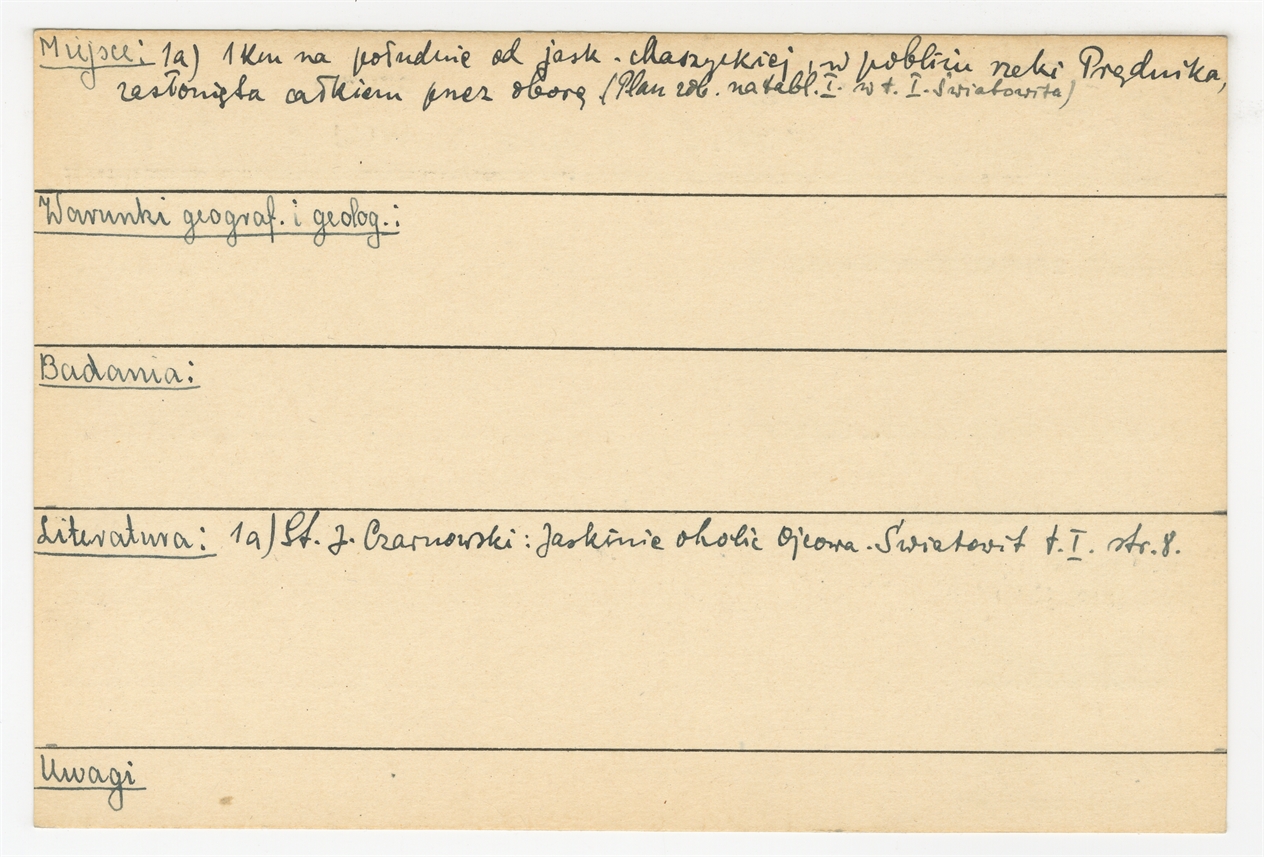 Miejsce: 1a) 1 km na południe od jask. Maszyckiej, w pobliżu rzeki Prądnika,
zasłonięta całkiem przez oborę (Plan zob. na tabl. I. w t. I. Światowita)
Warunki geograf. i geolog.:
Badania:
Literatura: 1a) St. J. Czarnowski: Jaskinie okolic Ojcowa. Światowit t. I. str. 8.
Uwagi